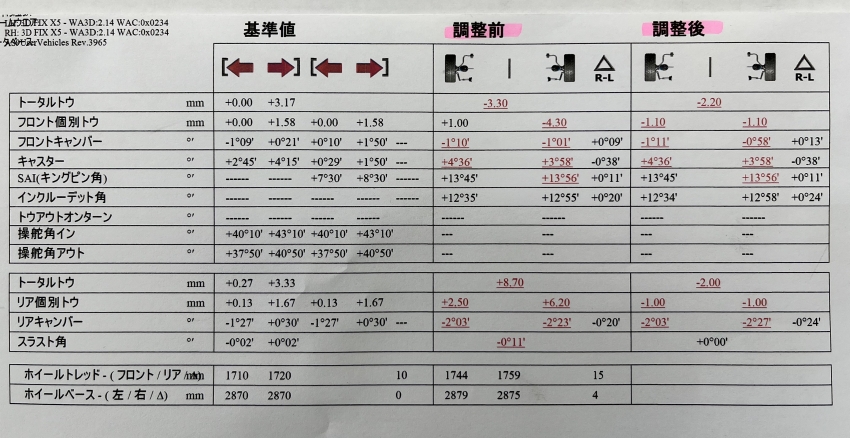 RH: 3D FIX X5 - WA3D:2.14 WAC:0x0234
Vehicles Rev.3965
基準値 調整前 調整後
R-L R-L
トータルトウ mm +0.00 +3.17 -3.30 -2.20
フロント個別トウ mm +0.00 +1.58 +0.00 +1.58 +1.00 -4.30 -1.10 -1.10
フロントキャンバー °' -1°09' +0°21' +0°10' +1°50' --- -1°10' -1°01' +0°09' -1°11' -0°58' +0°13'
キャスター °' +2°45' +4°15' +0°29' +1°50' --- +4°36' +3°58' -0°38' +4°36' +3°58' -0°38'
SAI(キングピン角) °' ------ ------ +7°30' +8°30' ------ +13°45' +13°56' +0°11' +13°45' +13°56' +0°11'
インクルーデット角 °' ------ ------ ------ ------ ------ +12°35' +12°55' +0°20' +12°34' +12°58' +0°24'
トウアウトオンターン °' ------ ------ ------ ------ ------ ------
操舵角イン °' +40°10' +43°10' +40°10' +43°10' --- --- --- ---
操舵角アウト °' +37°50' +40°50' +37°50' +40°50' --- --- --- ---
トータルトウ mm +0.27 +3.33 +8.70 -2.00
リア個別トウ mm +0.13 +1.67 +0.13 +1.67 +2.50 +6.20 -1.00 -1.00
リアキャンバー °' -1°27' +0°30' -1°27' +0°30' --- -2°03' -2°23' -0°20' -2°03' -2°27' -0°24'
スラスト角 °' -0°02' +0°02' -0°11' +0°00'
ホイールトレッド - ( フロント / リア / Δ) mm 1710 1720 10 1744 1759 15
ホイールベース - ( 左 / 右 / Δ) mm 2870 2870 0 2879 2875 4